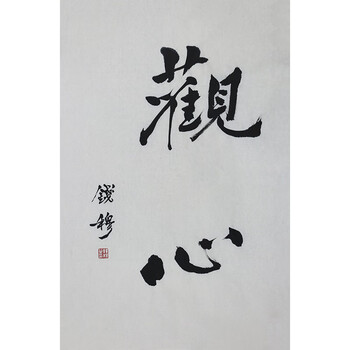 觀心
錢穆